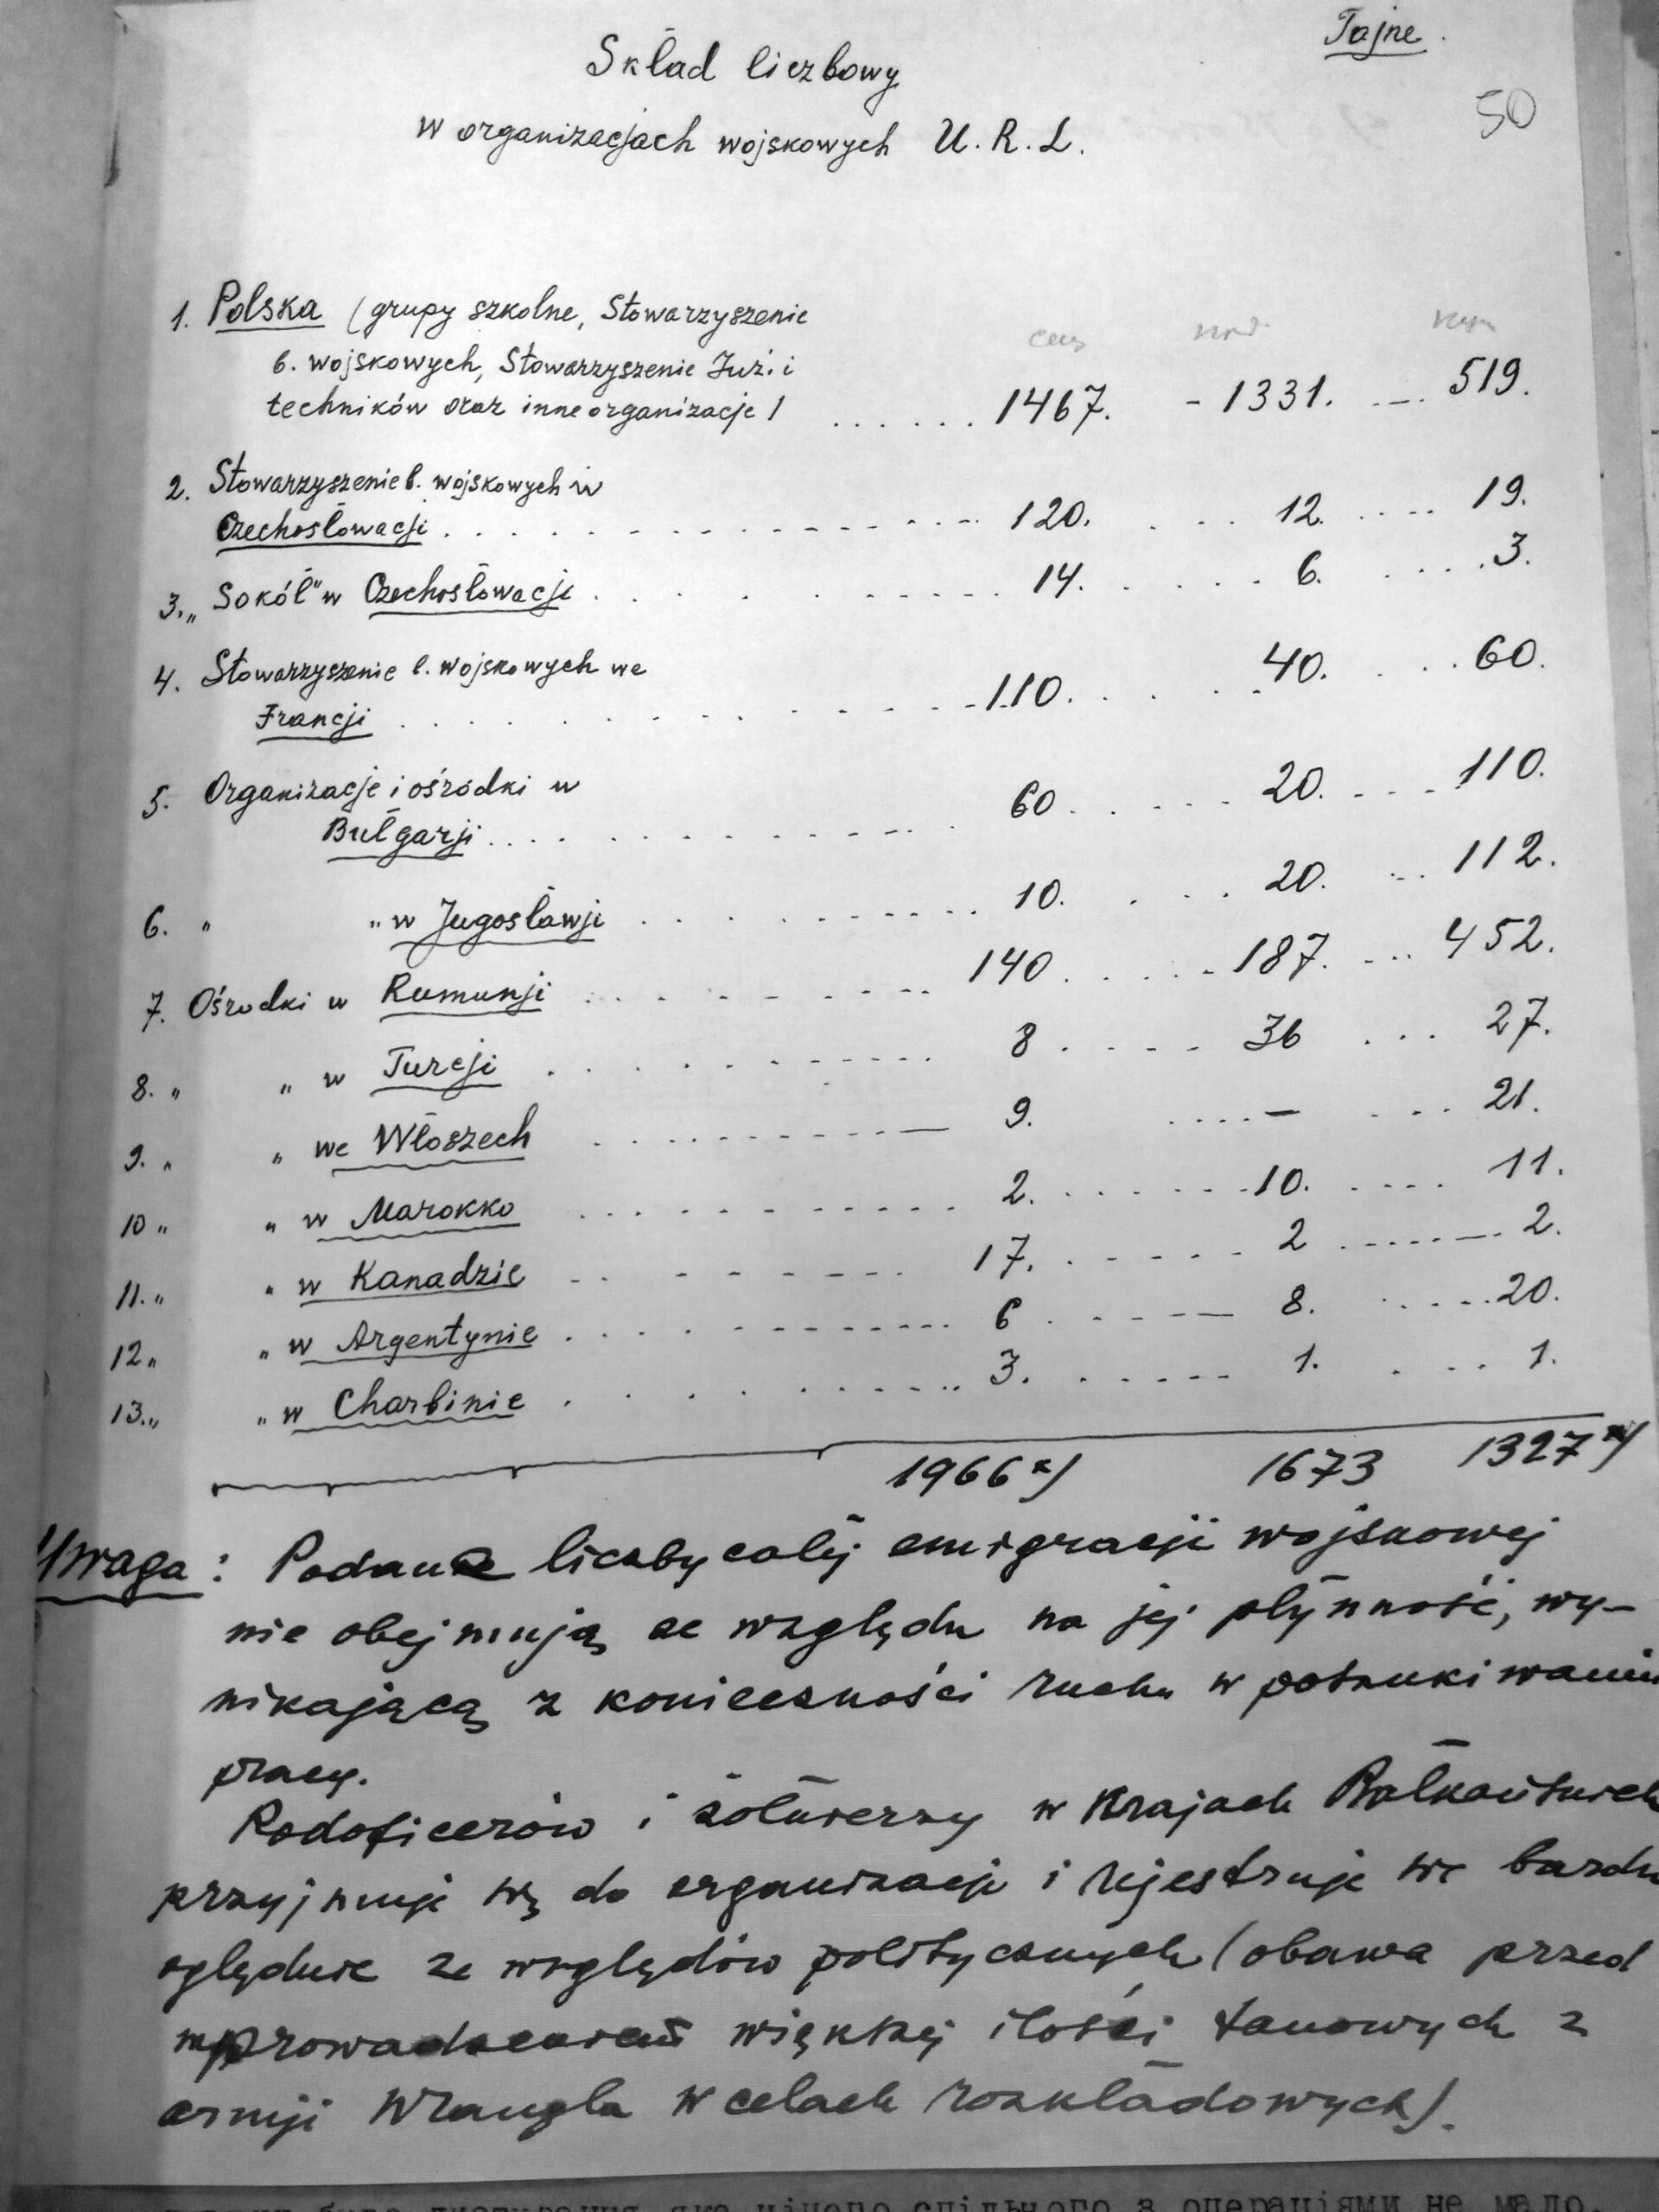 Tajne.
50
Skład liczbowy
w organizacjach wojskowych U. R. L.
1. Polska (grupy szkolne, Stowarzyszenie
b. wojskowych, Stowarzyszenie Inż. i
techników oraz inne organizacje / ...... 1467. - 1331. .... 519.
2. Stowarzyszenie b. wojskowych w
Czechosłowacji ...... 120. .... 12. .... 19.
3. „Sokół" w Czechosłowacji ...... 14. .... 6. .... 3.
4. Stowarzyszenie b. wojskowych we
Francji ...... 110. .... 40. .... 60.
5. Organizacje i ośrodki w
Bułgarji ...... 60. .... 20. .... 110.
6. " " w Jugosławji ...... 10. .... 20. .... 112.
7. Ośrodki w Rumunji ...... 140. .... 187. .... 452.
8. " " w Turcji ...... 8. .... 36 .... 27.
9. " " we Włoszech ...... 9. .... — .... 21.
10 " " w Marokko ...... 2. .... 10. .... 11.
11. " " w Kanadzie ...... 17. .... 2 .... 2.
12 " " w Argentynie ...... 6 .... 8. .... 20.
13. " " w Charbinie ...... 3. .... 1. .... 1.
1966 x) 1673 1327 x)
Uwaga: Podane liczby całej emigracji wojskowej
nie obejmują ze względu na jej płynność, wy-
nikającą z konieczności ruchu w poszukiwaniu
pracy.
Podoficerów i żołnierzy w Krajach Bałkańskich
przyjmuje się do organizacji i rejestruje się bardzo
oględnie ze względów politycznych (obawa przed
wprowadzeniem większej ilości tanowych z
armji Wrangla w celach rozkładowych).